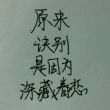 原来
诀别
是因为
深藏眷恋